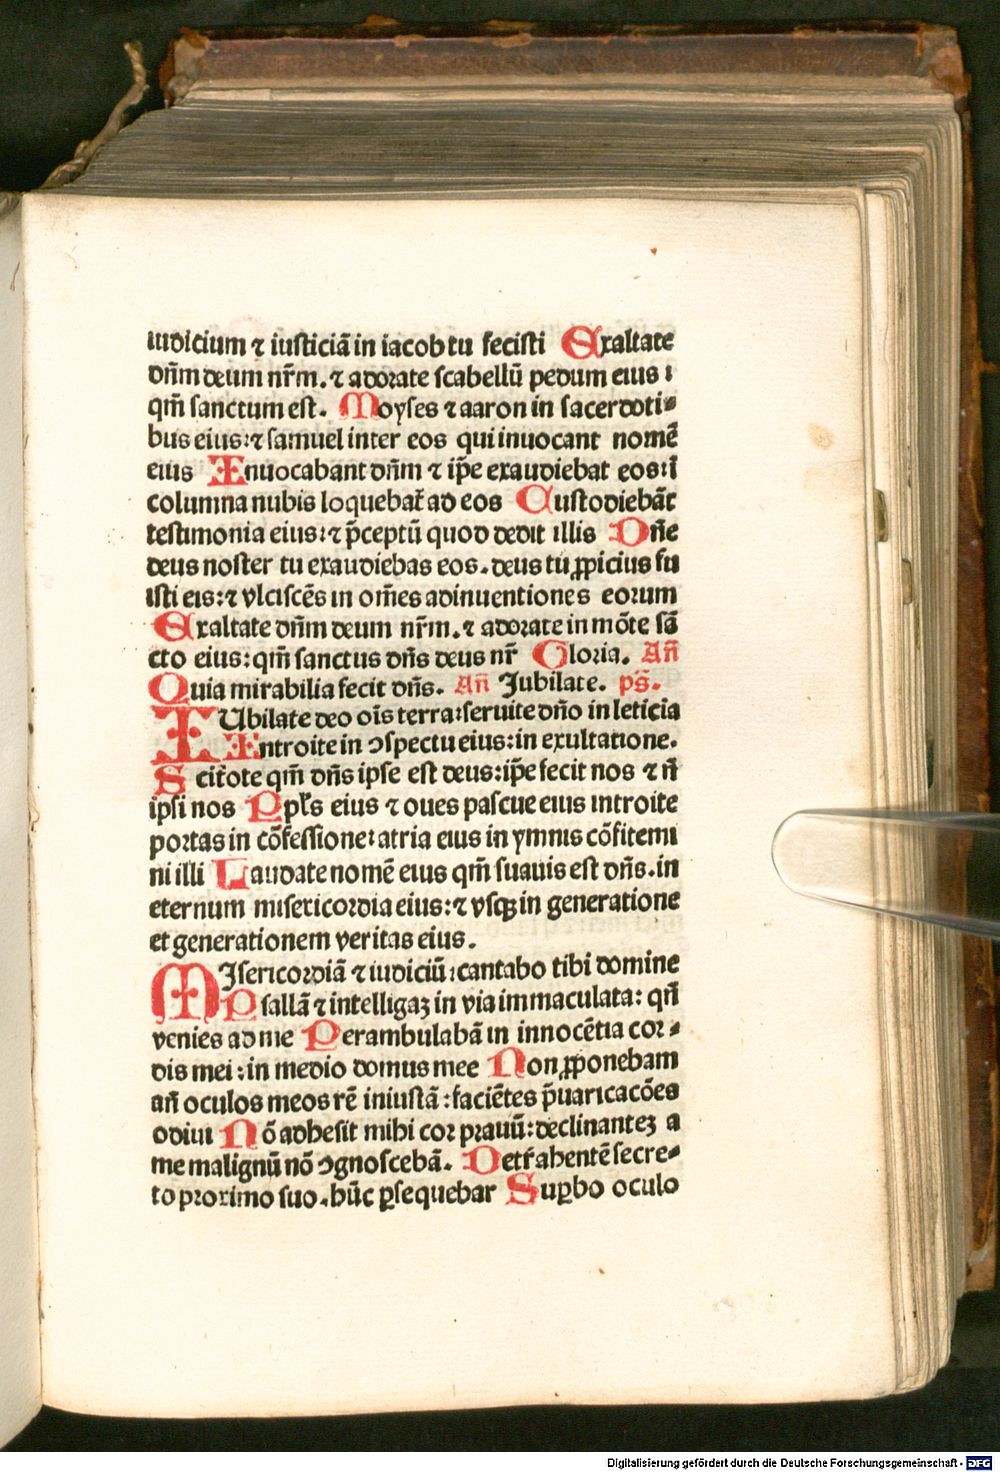 iudicium ⁊ iusticiā in iacob tu fecisti Exaltate
dn̄m deum nr̄m. ⁊ adorate scabellū pedum eius:
qm̄ sanctum est. Moyses ⁊ aaron in sacerdoti-
bus eius: ⁊ samuel inter eos qui inuocant nomē
eius Inuocabant dn̄m ⁊ ip̄e exaudiebat eos: ī
columna nubis loquebat̄ ad eos Custodiebāt
testimonia eius: ⁊ p̄ceptū quod dedit illis Dn̄e
deus noster tu exaudiebas eos. deus tu ꝓpicius fu
isti eis: ⁊ vlciscēs in om̄es adinuentiones eorum
Exaltate dn̄m deum nr̄m. ⁊ adorate in mōte sā
cto eius: qm̄ sanctus dn̄s deus nr̄ Gloria. An̄
Quia mirabilia fecit dn̄s. An̄ Jubilate. ps̄.
IUbilate deo oīs terra: seruite dn̄o in leticia
Introite in ↄspectu eius: in exultatione.
Scitote qm̄ dn̄s ipse est deus: ip̄e fecit nos ⁊ n̄
ipsi nos Ppl̄s eius ⁊ oues pascue eius introite
portas in cōfessione: atria eius in ymnis cōfitemi
ni illi Laudate nomē eius qm̄ suauis est dn̄s. in
eternum misericordia eius: ⁊ vsqꝫ in generatione
et generationem veritas eius.
MIsericordiā ⁊ iudiciū: cantabo tibi domine
Psallā ⁊ intelligaꝫ in via immaculata: qn̄
venies ad me Perambulabā in innocētia cor-
dis mei: in medio domus mee Non ꝓponebam
an̄ oculos meos rē iniustā: faciētes p̄uaricacōes
odiui Nō adhesit mihi cor prauū: declinanteꝫ a
me malignū nō ↄgnoscebā. Detrahentē secre-
to proximo suo. hūc ꝑsequebar Suꝑbo oculo
Digitalisierung gefördert durch die Deutsche Forschungsgemeinschaft - DFG